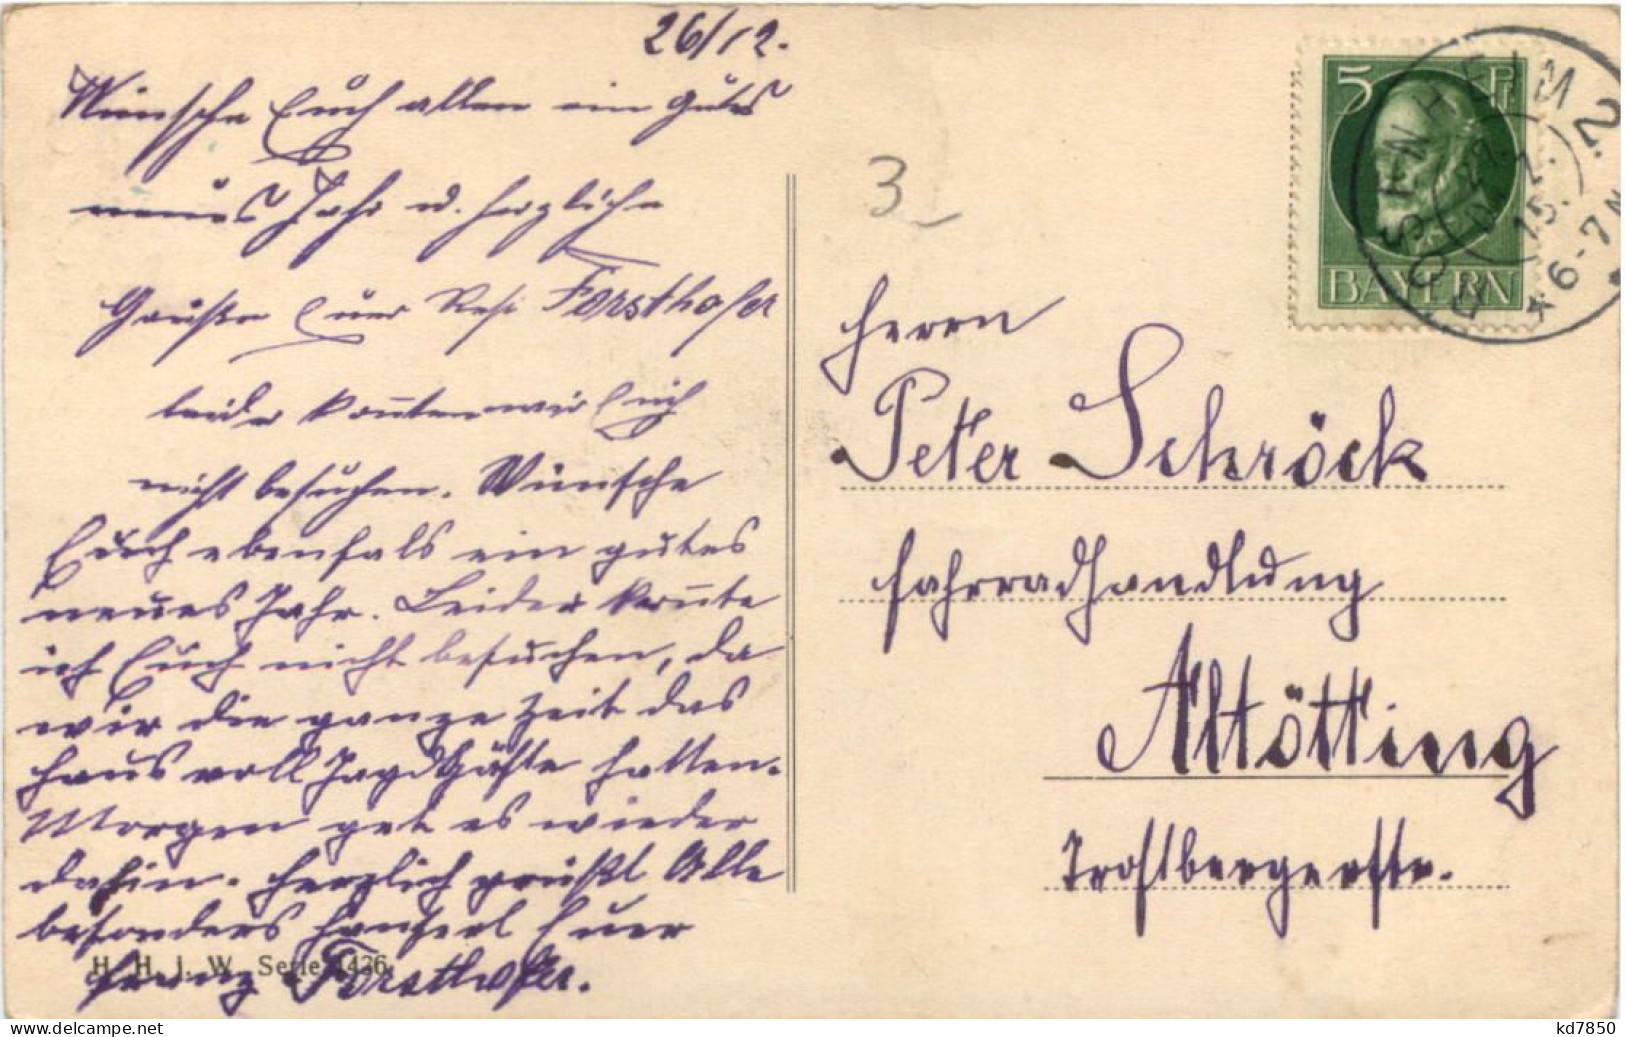 26/12.
Wünsche Euch allen ein gutes
neues Jahr u. herzliche
Grüße Euer Resi Forsthofer
leider konnten wir Euch
nicht besuchen. Wünsche
Euch ebenfals ein gutes
neues Jahr. Leider konnte
ich Euch nicht besuchen, da
wir die ganze Zeit das
Haus voll Jagdgäste hatten.
Morgen get es wieder
dahin. Herzlich grüßt Alle
besonders Euer
Franz Forsthofer.
H. H. J. W. Serie 1426
3
5 Pf
BAYERN
ROSENHEIM 2.
27.
DEZ.
15.
6-7 N
Herrn
Peter Schröck
Fahrradhandlung
Altötting
Trostbergerstr.
delcampe.net
kd7850